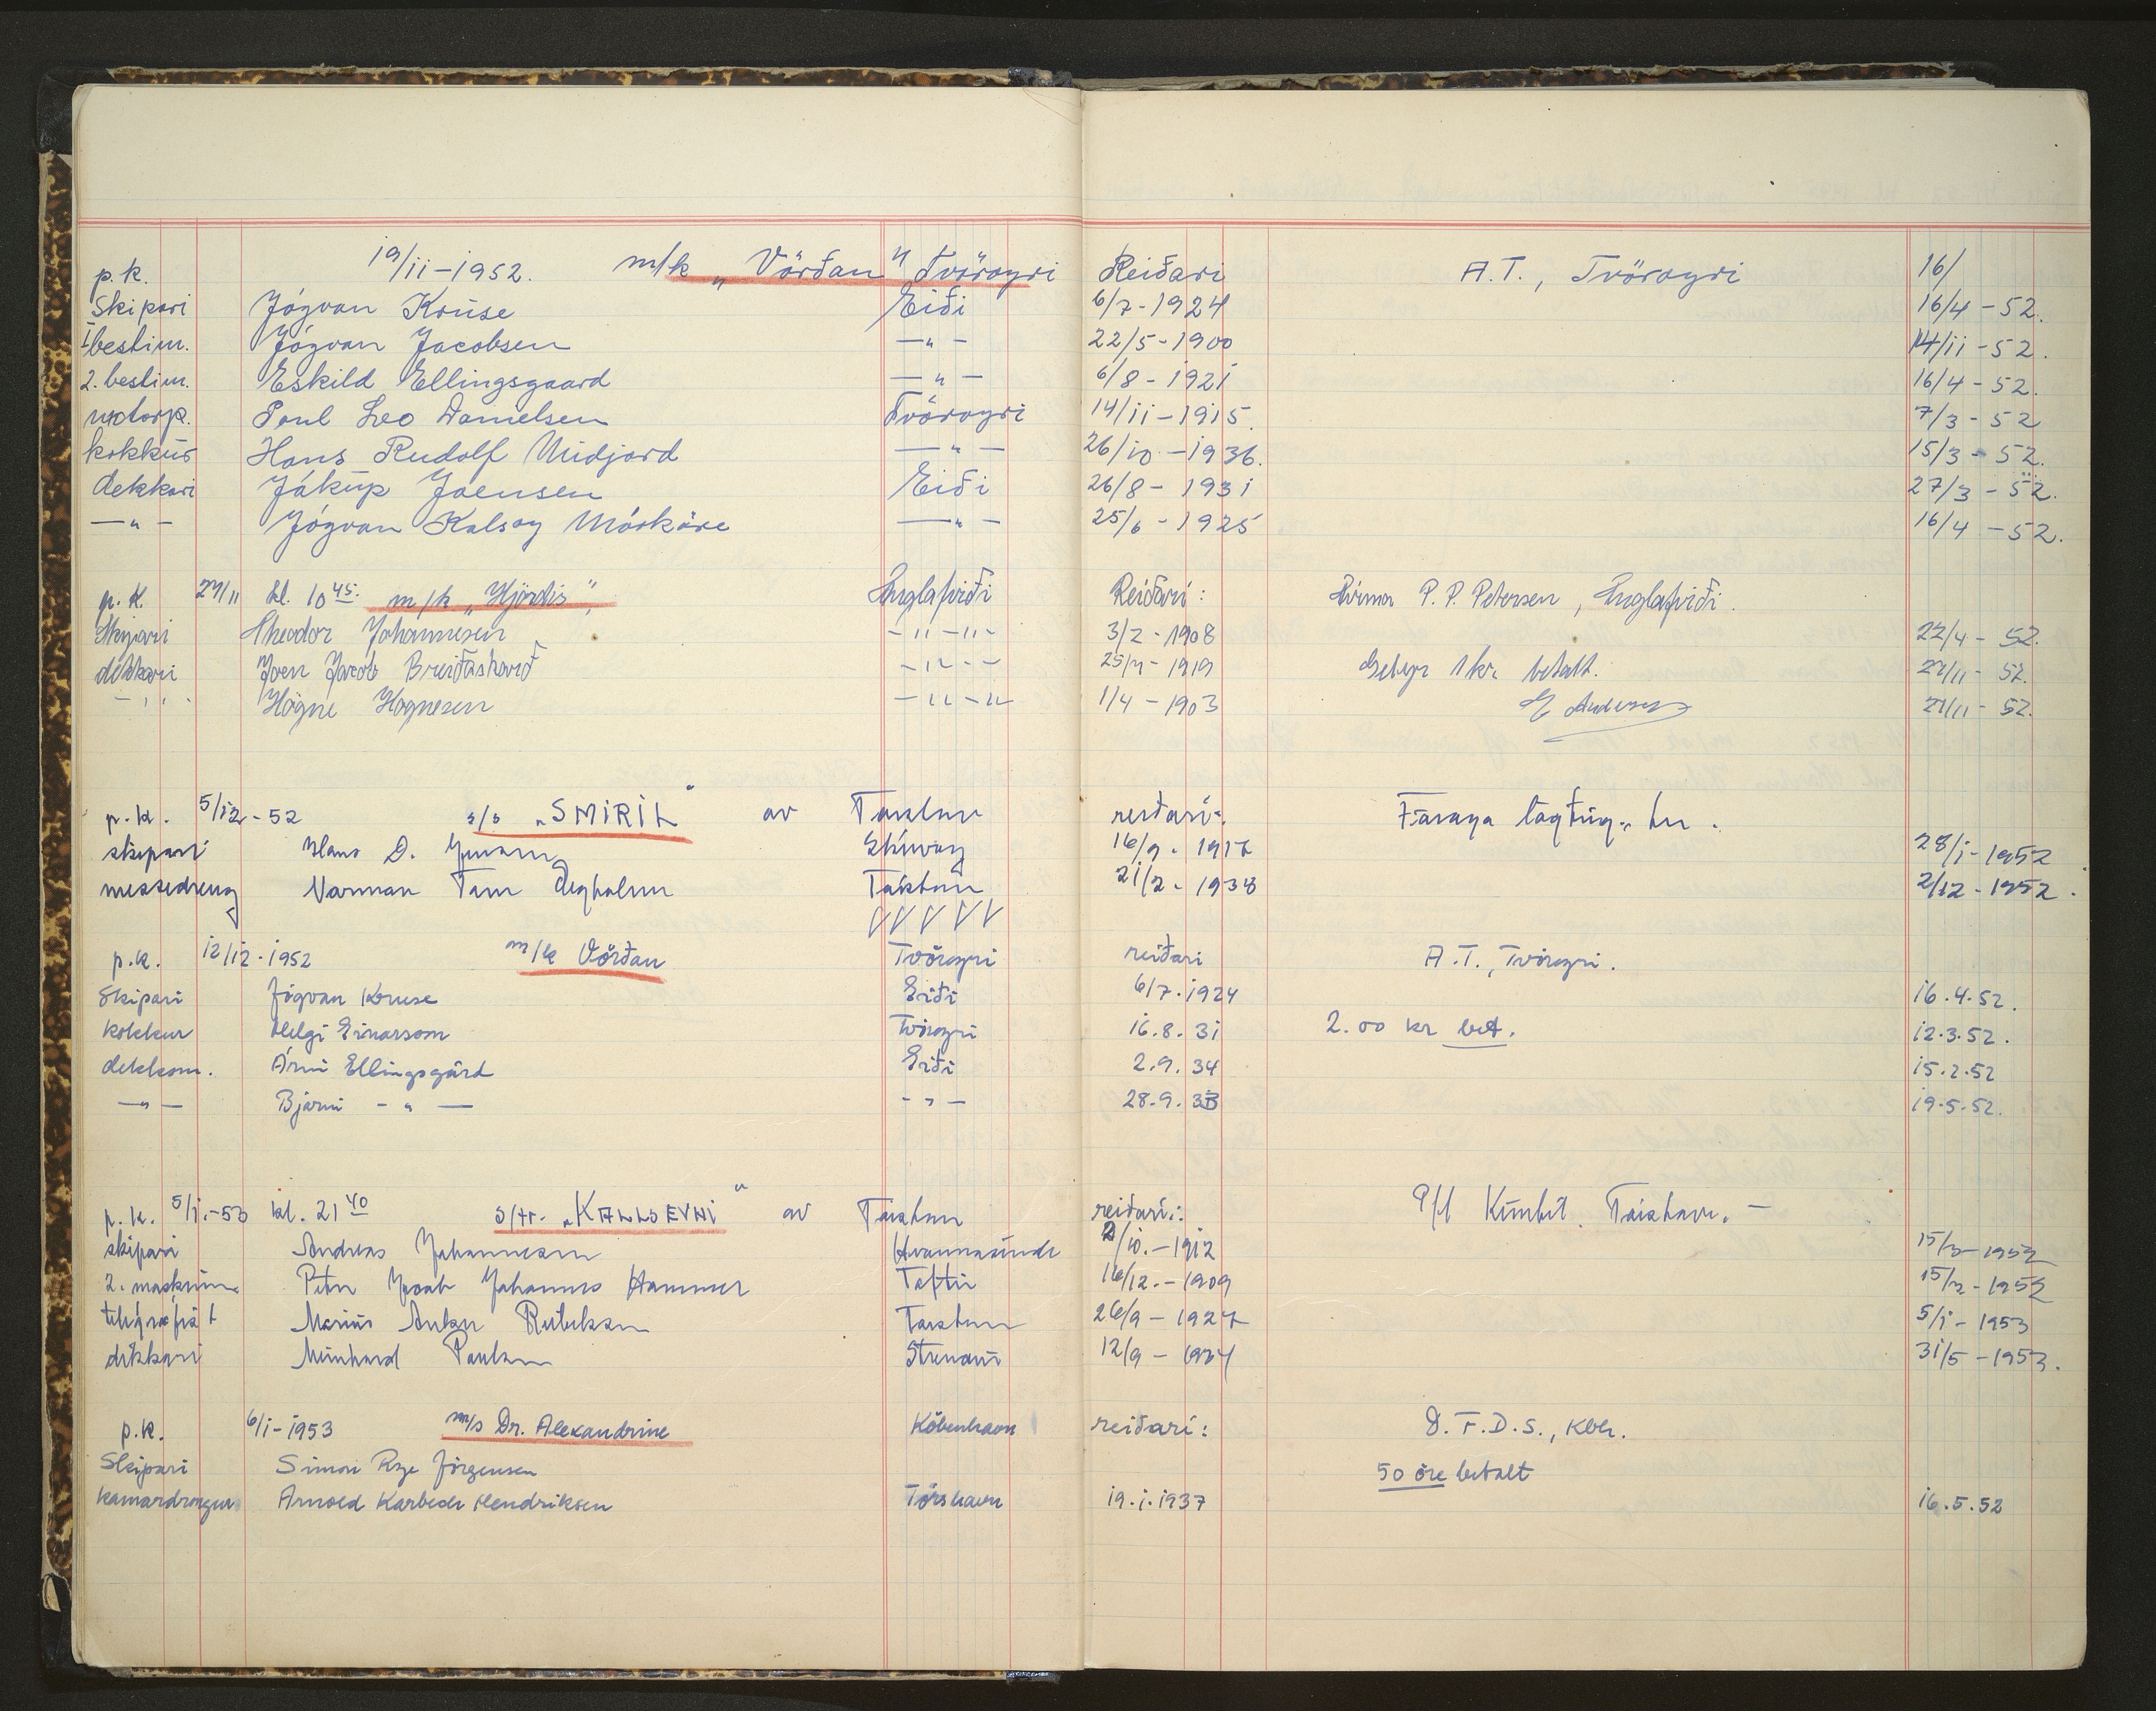 p.k. 19/11-1952. m/k „Vörðan" Tvöroyri Reiðari A.T., Tvöroyri 16/
Skipari Jógvan Kruse Eiði 6/7-1924 16/4-52.
1 bestim. Jógvan Jacobsen —"— 22/5-1900 14/11-52.
2. bestim. Eskild Ellingsgaard —"— 6/8-1921 16/4-52.
motorp. Poul Leo Danielsen Tvöroyri 14/11-1915. 7/3-52
kokkur Hans Rudolf Midjord —"— 26/10-1936. 15/3-52.
dekkari Jákup Joensen Eiði 26/8-1931 27/3-52.
—"— Jógvan Kalsoy Mórkøre —"— 25/6-1925 16/4-52.
p.k. 27/11 kl. 10 45. m/k „Hjördis" Fuglafirði Reiðari: Firma P.P. Petersen, Fuglafirði.
Skipari Theodor Johannesen -"-"- 3/2-1908 22/4-52.
dekkari Joen Jacob Breiðaskarð -"-- 1919 Gebyr 1 kr. betalt. 52.
-"- Högne Høgnesen -"-"- 1/4-1903 E Andersen 52.
p.k. 5/12-52 s/s „SMIRIL" av Torshavn reiðari: Føroya løgting., hn.
skipari Hans D. Skúvoy 16/9-1917 28/1-1952
messedreng Tórshavn 21/2-1938 2/12-1952.
p.k. 12/12-1952 m/k Vörðan Tvöroyri reiðari A.T., Tvöroyri.
Skipari Jógvan Kruse Eiði 6/7.1924 16.4.52.
kokkur Helgi Einarsson Tvöroyri 16.8.31 2.00 kr bet. 12.3.52.
dekkom. Árni Ellingsgård Eiði 2.9.34 15.2.52
—"— Bjarni -"— -"— 28.9.33 19.5.52.
p.k. 5/1.-53 kl. 21 40 s/tr. „KALLSEVNI" av Torshavn reiðari: P/f Kimbil. Torshavn. —
skipari Andreas Johannesen Hvannasundi 2/10.-1912 15/3-1952
2. maskinm. Petur Jacob Johannes Hammer Toftir 16/12.-1909 15/2-1952
telegrafist Marius Torshavn 26/9-1927 5/1-1953
dekkari Meinhard Poulsen 12/9- 31/5-1953.
p.k. 6/1-1953 m/s Dr. Alexandrine Köbenhavn reiðari: D.F.D.S., Kbh.
Skipari Simon Rye Jörgensen 50 öre betalt
kamardrongur Arnold Karbech Hendriksen Tórshavn 19.1.1937 16.5.52